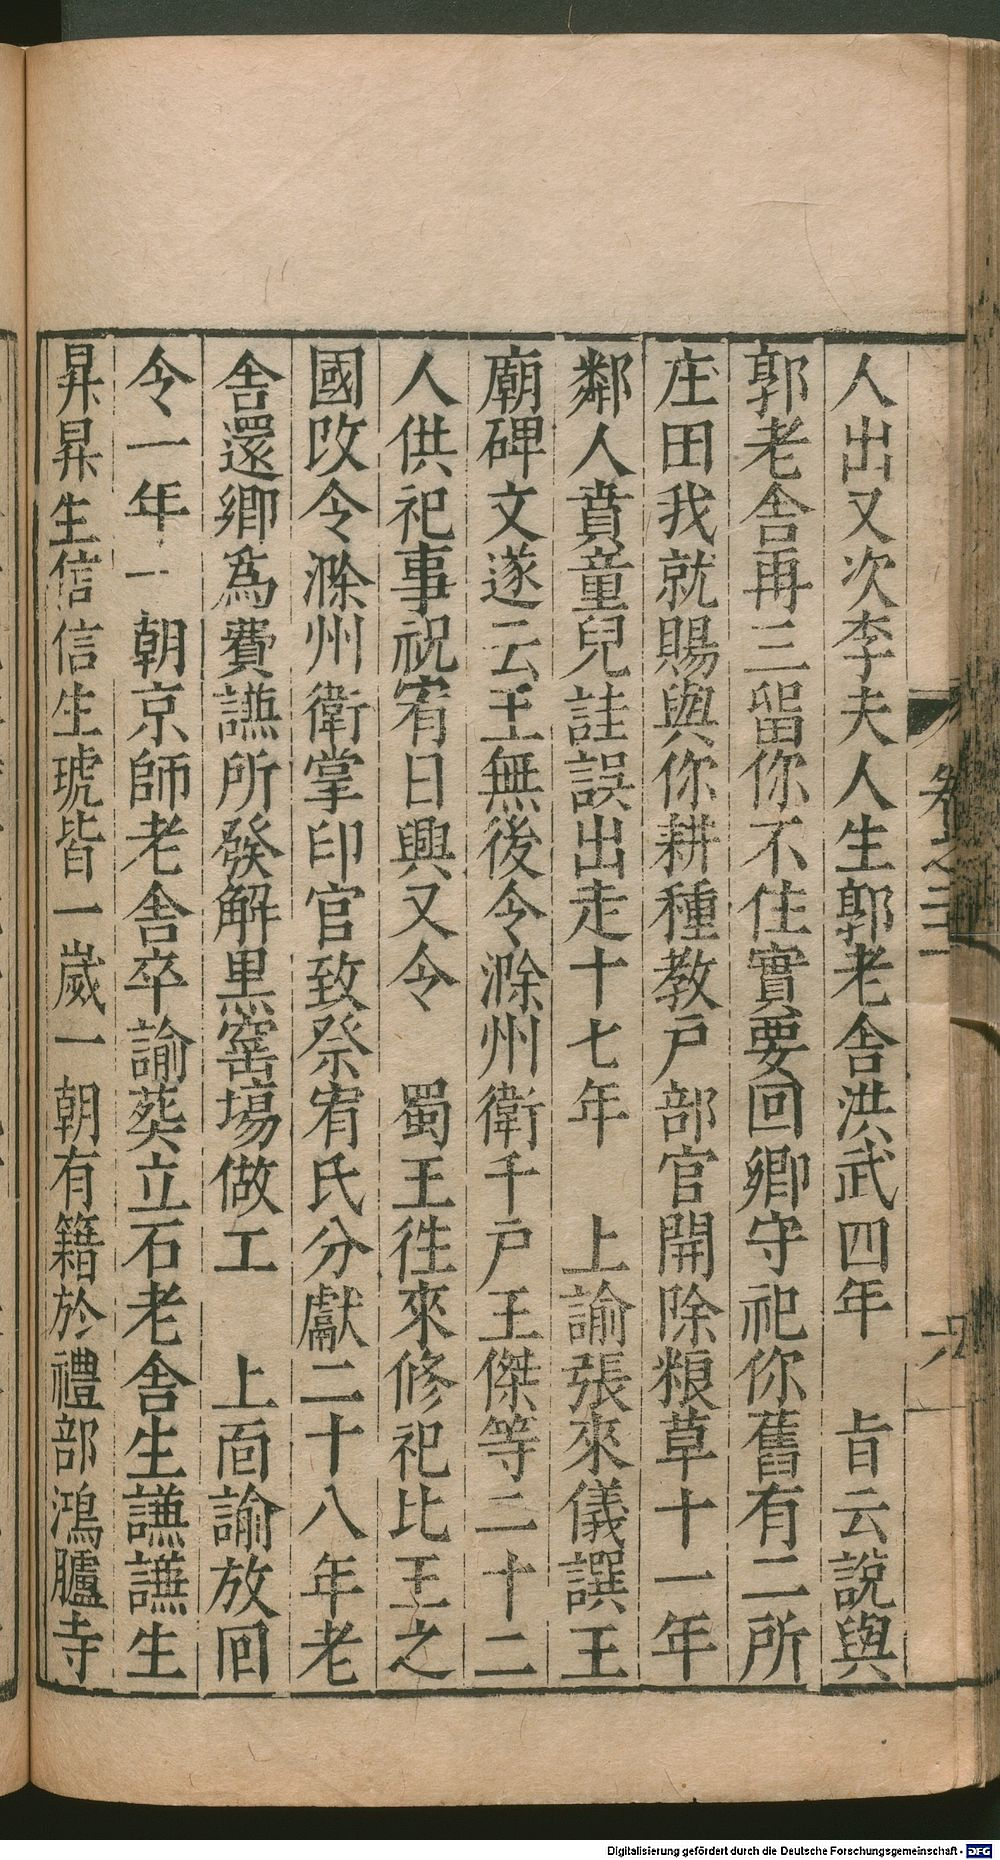 人出又次李夫人生郭老舎洪武四年　旨云說與
郭老舎再三留你不住實要回鄉守祀你舊有二所
庄田我就賜與你耕種教戸部官開除粮草十一年
鄰人賁童兒詿誤出走十七年　上諭張來儀譔王
廟碑文遂云王無後令滁州衛千戸王傑等二十二
人供祀事祝宥日興又令　蜀王徃來修祀比王之
國改令滁州衛掌印官致祭宥氏分獻二十八年老
舎還鄉為費讌所發解黒窰塲做工　上面諭放回
令一年一朝京師老舎卒諭葬立石老舎生讌讌生
昇昇生信信生琥皆一歲一朝有籍於禮部鴻臚寺
卷之三
九
Digitalisierung gefördert durch die Deutsche Forschungsgemeinschaft - DFG